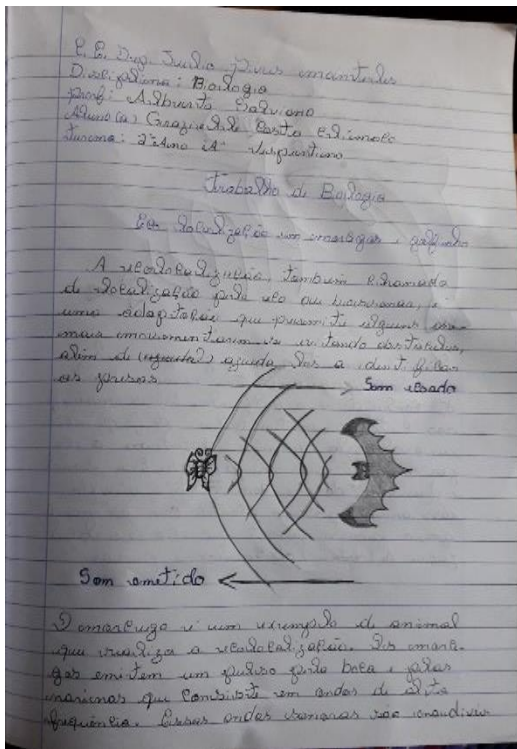 E. E. Dep. Julio pires
Disciplina: Biologia
prof: Alberto Salviano
Aluno(a) Graziele Costa
turma: 2º Ano "A" Vespertino
Trabalho de Biologia
Eco localização em morcegos e golfinho
A ecolocalização, também chamada
de localização pelo eco ou biossonar, é
uma adaptação que permite alguns
evitando obstáculos,
além de ajuda-los a identificar
as presas
Som ecoado
Som emetido
O morcego é um exemplo de animal
que realiza a ecolocalização. Os morce-
gos emitem um pulso pela boca e pelas
narinas que consiste em ondas de alta
frequência. Essas ondas sonoras são inaudiveis